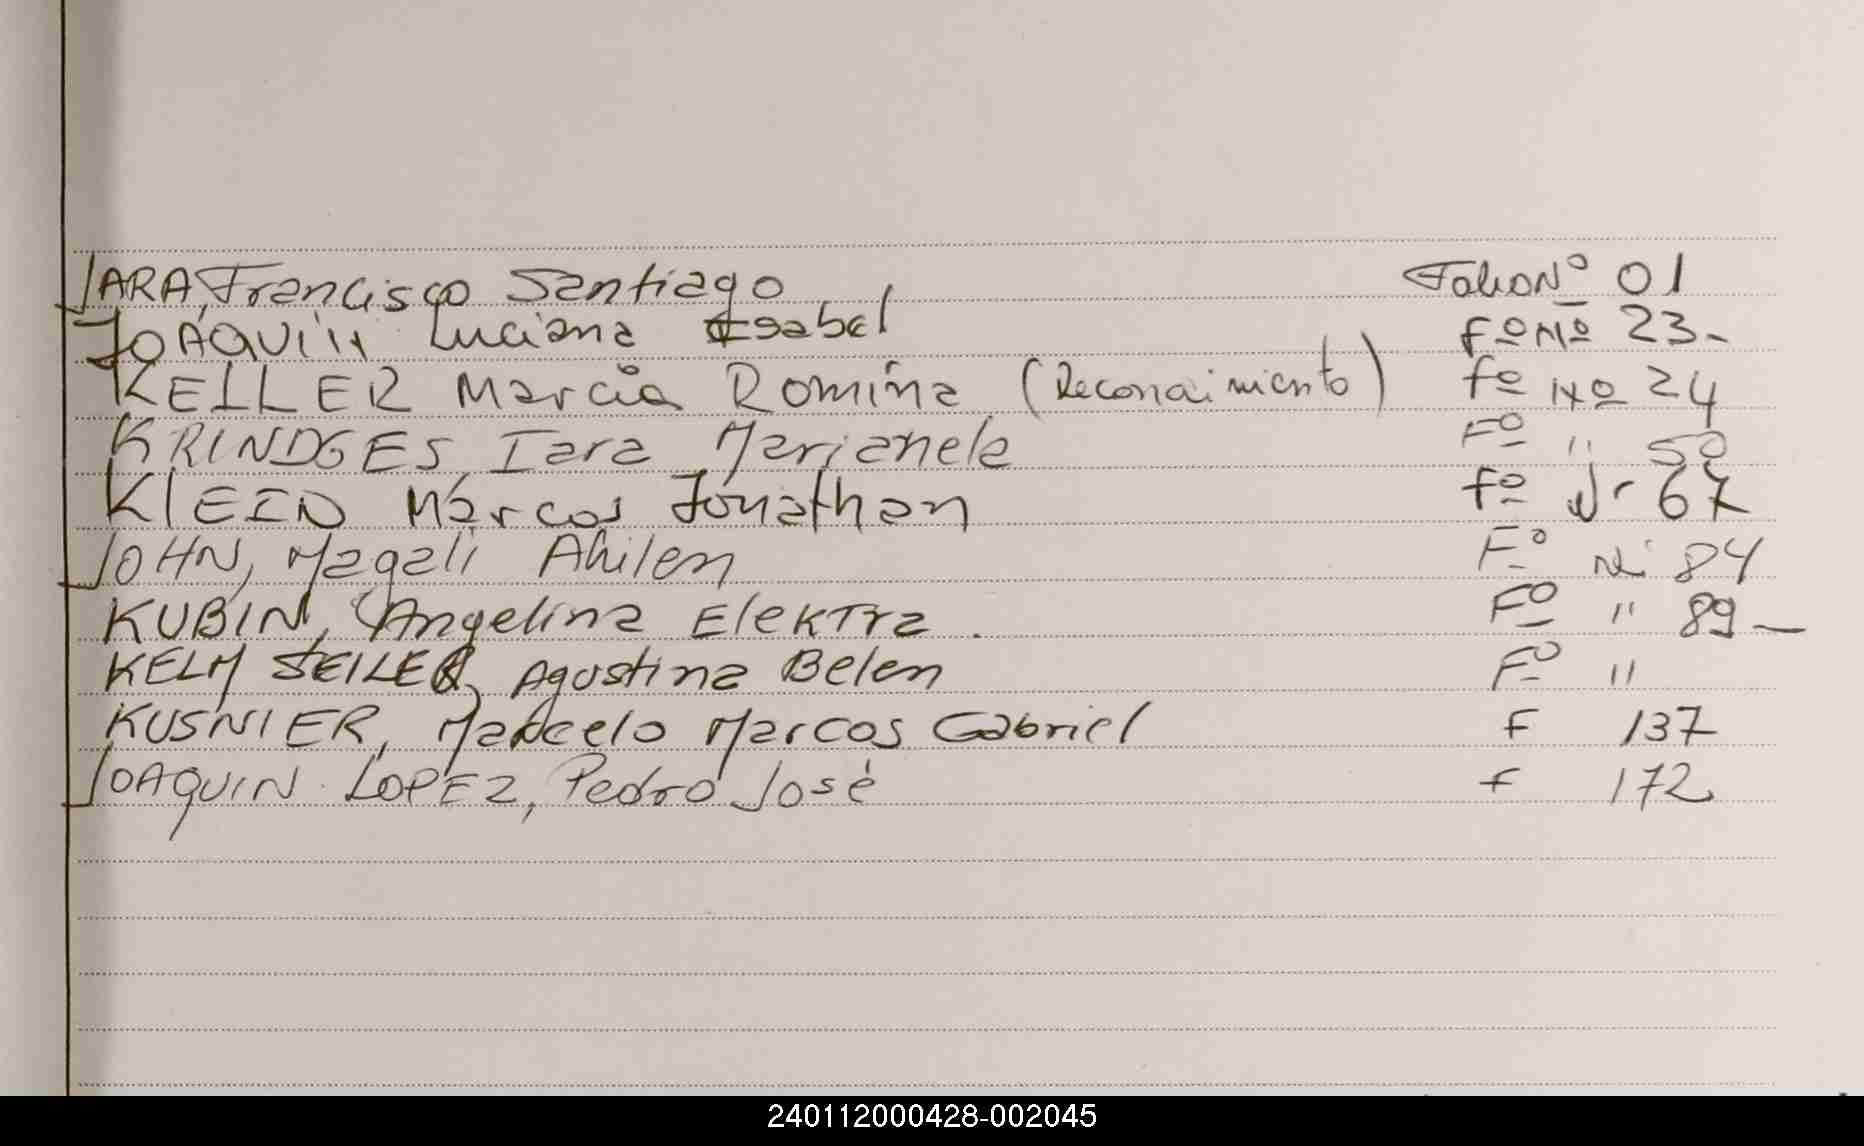 JARA, Francisco Santiago Folio Nº 01
JOAQUÍN Luciana Isabel Fº Nº 23-
KELLER Marcia Romina (Reconaimiento) Fº Nº 24
KRINDGES, Iara Marianela Fº " 50
KlEIN Marcos Jonathan Fº Nº 67
JOHN, Magali Ahilen Fº Nº 84
KUBIN, Angelina Elektra. Fº " 89-
KELM SEILER, Agustina Belen Fº "
KUSNIER, Marcelo Marcos Gabriel F 137
JOAQUIN LOPEZ, Pedro José F 172
240112000428-002045